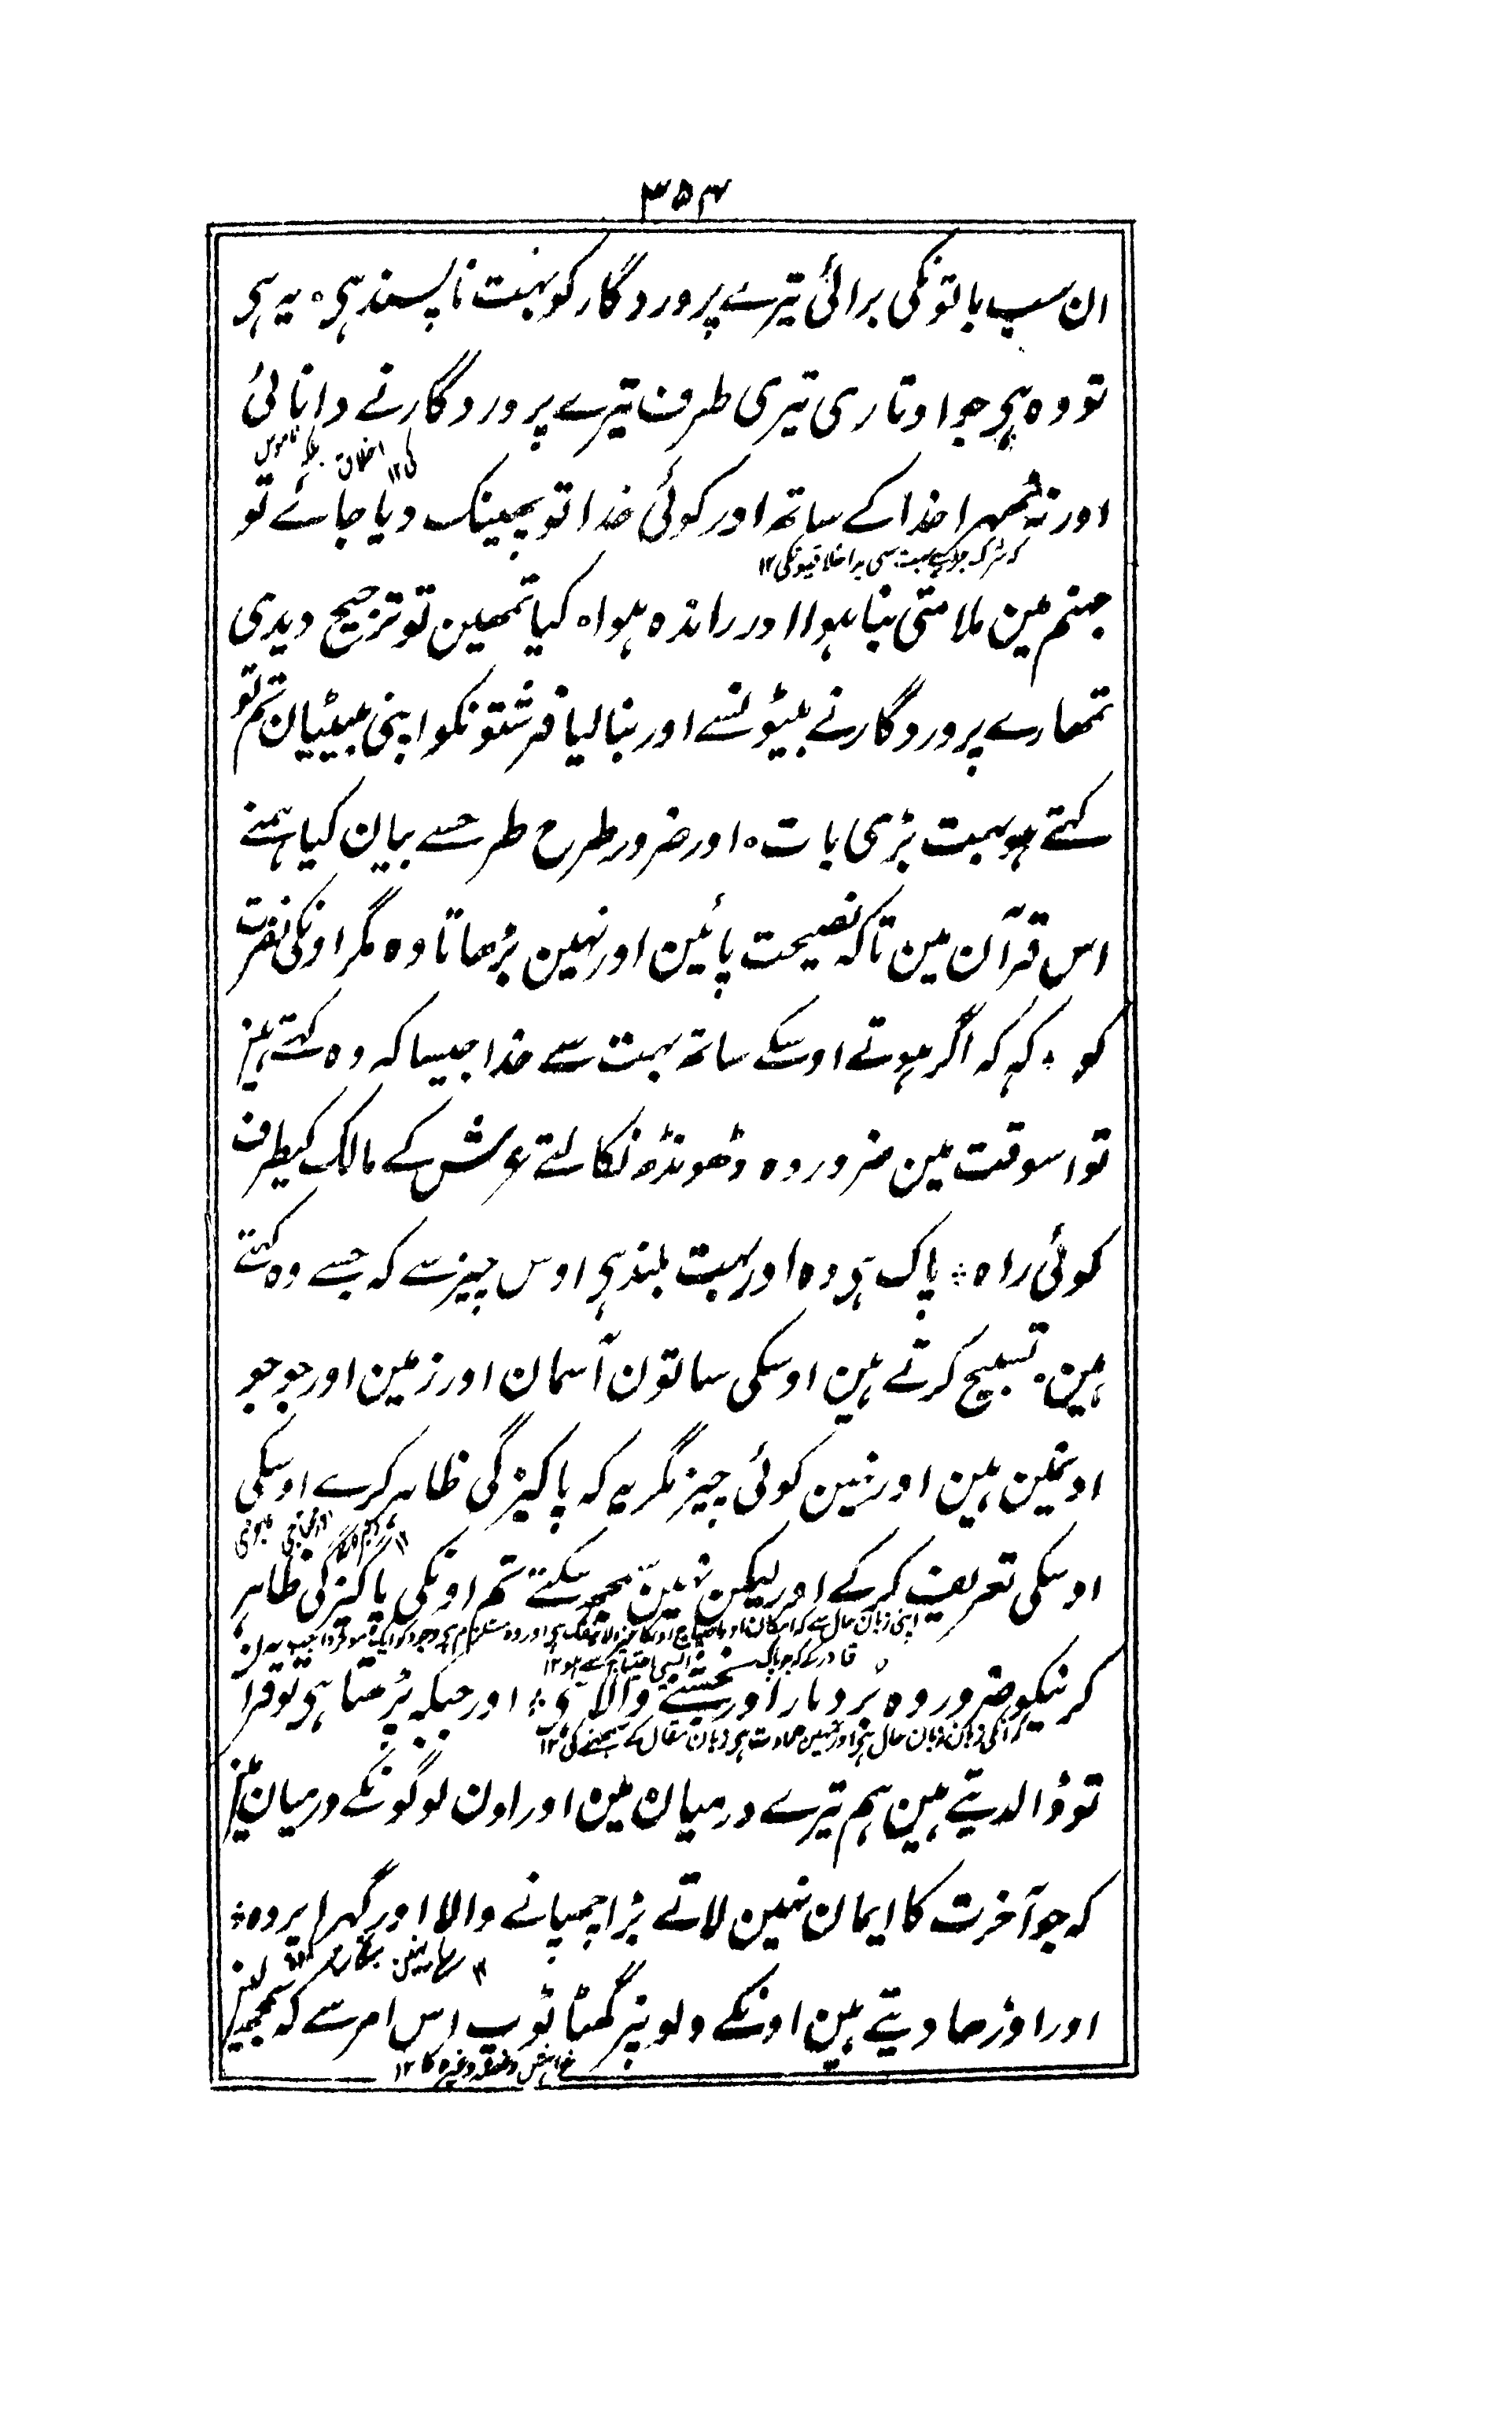 ۳۵۴
ان سب باتونکی برائی تیرے پروردگار کو بہت ناپسند ہی ٥ یہ ہی
تو وہ ہی جو اوتاری تیری طرف تیرے پروردگار نے دانائی
کی ۱۲ اخلاق
اور نہ ٹھہرا خدا کے ساتھ اور کوئی خدا تو پھینک دیا جائے تو
کہ شرک جڑ ہے بہت سی بد اخلاقیونکی ۱۲
جہنم مین ملامتی بنا ہوا اور راندہ ہوا ٥ کیا تمھین تو ترجیح دیدی
تمھارے پروردگار نے بیٹونسے اور بنا لیا فرشتونکو اپنی بیٹیان تم تو
کہتے ہو بہت بڑی بات ٥ اور ضرور طرح طرحسے بیان کیا ہمنے
اس قرآن مین تاکہ نصیحت پائین اور نہین بڑھاتا وہ مگر اونکی نفرت
کو ٥ کہہ کہ اگر ہوتے اوسکے ساتھ بہت سے خدا جیسا کہ وہ کہتے ہین
تو اسوقت مین ضرور وہ ڈھونڈھ نکالتے عرش کے مالک کیطرف
کوئی راہ ٥ پاک ہی وہ اور بہت بلند ہی اوس چیز سے کہ جسے وہ کہتے
ہین ٥ تسبیح کرتے ہین اوسکی ساتون آسمان اور زمین اور جو جو
اونمین ہین اور نہین کوئی چیز مگر یہ کہ پاکیزگی ظاہر کرے اوسکی
اوسکی تعریف کرکے اور لیکن نہین سمجھ سکتے تم اونکی پاکیزگی ظاہر
اپنی زبان حال سے کہ امکان اور احتیاج اوسکا
قادر کے کہ جو پاک ایسی احتیاج سے ہو ۱۲
کرنیکو ضرور وہ بردبار اور بخشنے والا ہی ٥ اور جبکہ پڑھتا ہی تو قرآن
زبان حال ہی اور تمھین عادت ہی زبان مقال کے سمجھنے کی ۱۲
تو ڈالدیتے ہین ہم تیرے درمیان مین اور اون لوگونکے درمیان مین
کہ جو آخرت کا ایمان نہین لاتے بڑا چھپانے والا اور گہرا پردہ ٥
اور اوڑھا دیتے ہین اونکے دلونپر گھٹاٹوپ اس امر سے کہ سمجھین
خواہش و غصہ وغیرہ کا ۱۲